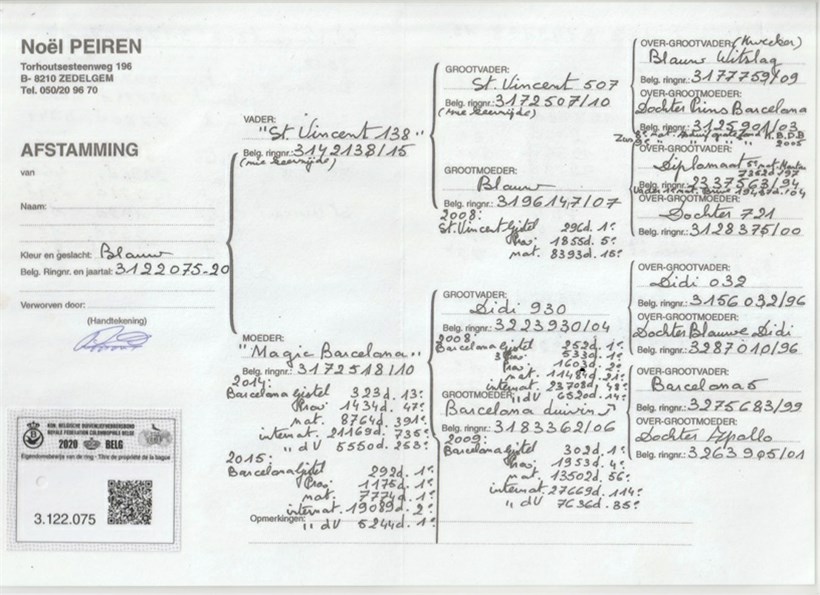 Noël PEIREN
Torhoutsesteenweg 196
B- 8210 ZEDELGEM
Tel. 050/20 96 70
AFSTAMMING
van
Naam:
Kleur en geslacht: Blauw
Belg. Ringnr. en jaartal: 3122075-20
Verworven door:
(Handtekening)
KON. BELGISCHE DUIVENLIEFHEBBERSBOND
ROYALE FEDERATION COLOMBOPHILE BELGE
2020 BELG
Eigendomsbewijs van de ring - Titre de propriété de la bague
3.122.075
VADER:
"St. Vincent 138"
Belg. ringnr.: 3142138/15
MOEDER:
"Magic Barcelona"
Belg. ringnr.: 3172518/10
2014:
Barcelona Gistel 323d. 13e
Prov 1434d. 47e
nat. 8764d. 391e
internat. 21169d. 735e
" dV 5550d. 253e
2015:
Barcelona Gistel 292d. 1e
Prov 1175d. 1e
nat 7774d 1e
internat. 19089d. 2e
Opmerkingen: " dV 5244d. 1e
GROOTVADER:
St. Vincent 507
Belg. ringnr.: 3172507/10
GROOTMOEDER:
Blauw
Belg. ringnr.: 3196147/07
2008:
St. Vincent Gistel 296d. 1e
Prov 1855d. 5e
nat. 8393d. 15e
GROOTVADER:
Didi 930
Belg. ringnr.: 3223930/04
2008:
Barcelona Gistel 252d. 1e
533d. 1e
Prov. 1603d. 2e
nat. 11484d. 21e
internat 23708d. 48e
" dV 6520d. 14e
GROOTMOEDER:
Barcelona duivin
Belg. ringnr.: 3183362/06
2009:
Barcelona Gistel 302d. 1e
Prov. 1953d. 4e
nat 13502d. 56e
internat. 27669d. 114e
" dV 7636d. 35e
OVER-GROOTVADER: (Kweeker)
Blauw Witslag
Belg. ringnr.: 3177759/09
OVER-GROOTMOEDER:
Dochter Prins Barcelona
Belg. ringnr.: 3125901/03
K.B.D.B
2005
OVER-GROOTVADER:
Diplomaat
Belg. ringnr.: 2337563/94
OVER-GROOTMOEDER:
Dochter 721
Belg. ringnr.: 3128375/00
OVER-GROOTVADER:
Didi 032
Belg. ringnr.: 3156032/96
OVER-GROOTMOEDER:
Dochter Blauwe Didi
Belg. ringnr.: 3287010/96
OVER-GROOTVADER:
Barcelona 5
Belg. ringnr.: 3275683/99
OVER-GROOTMOEDER:
Dochter Apollo
Belg. ringnr.: 3263905/01